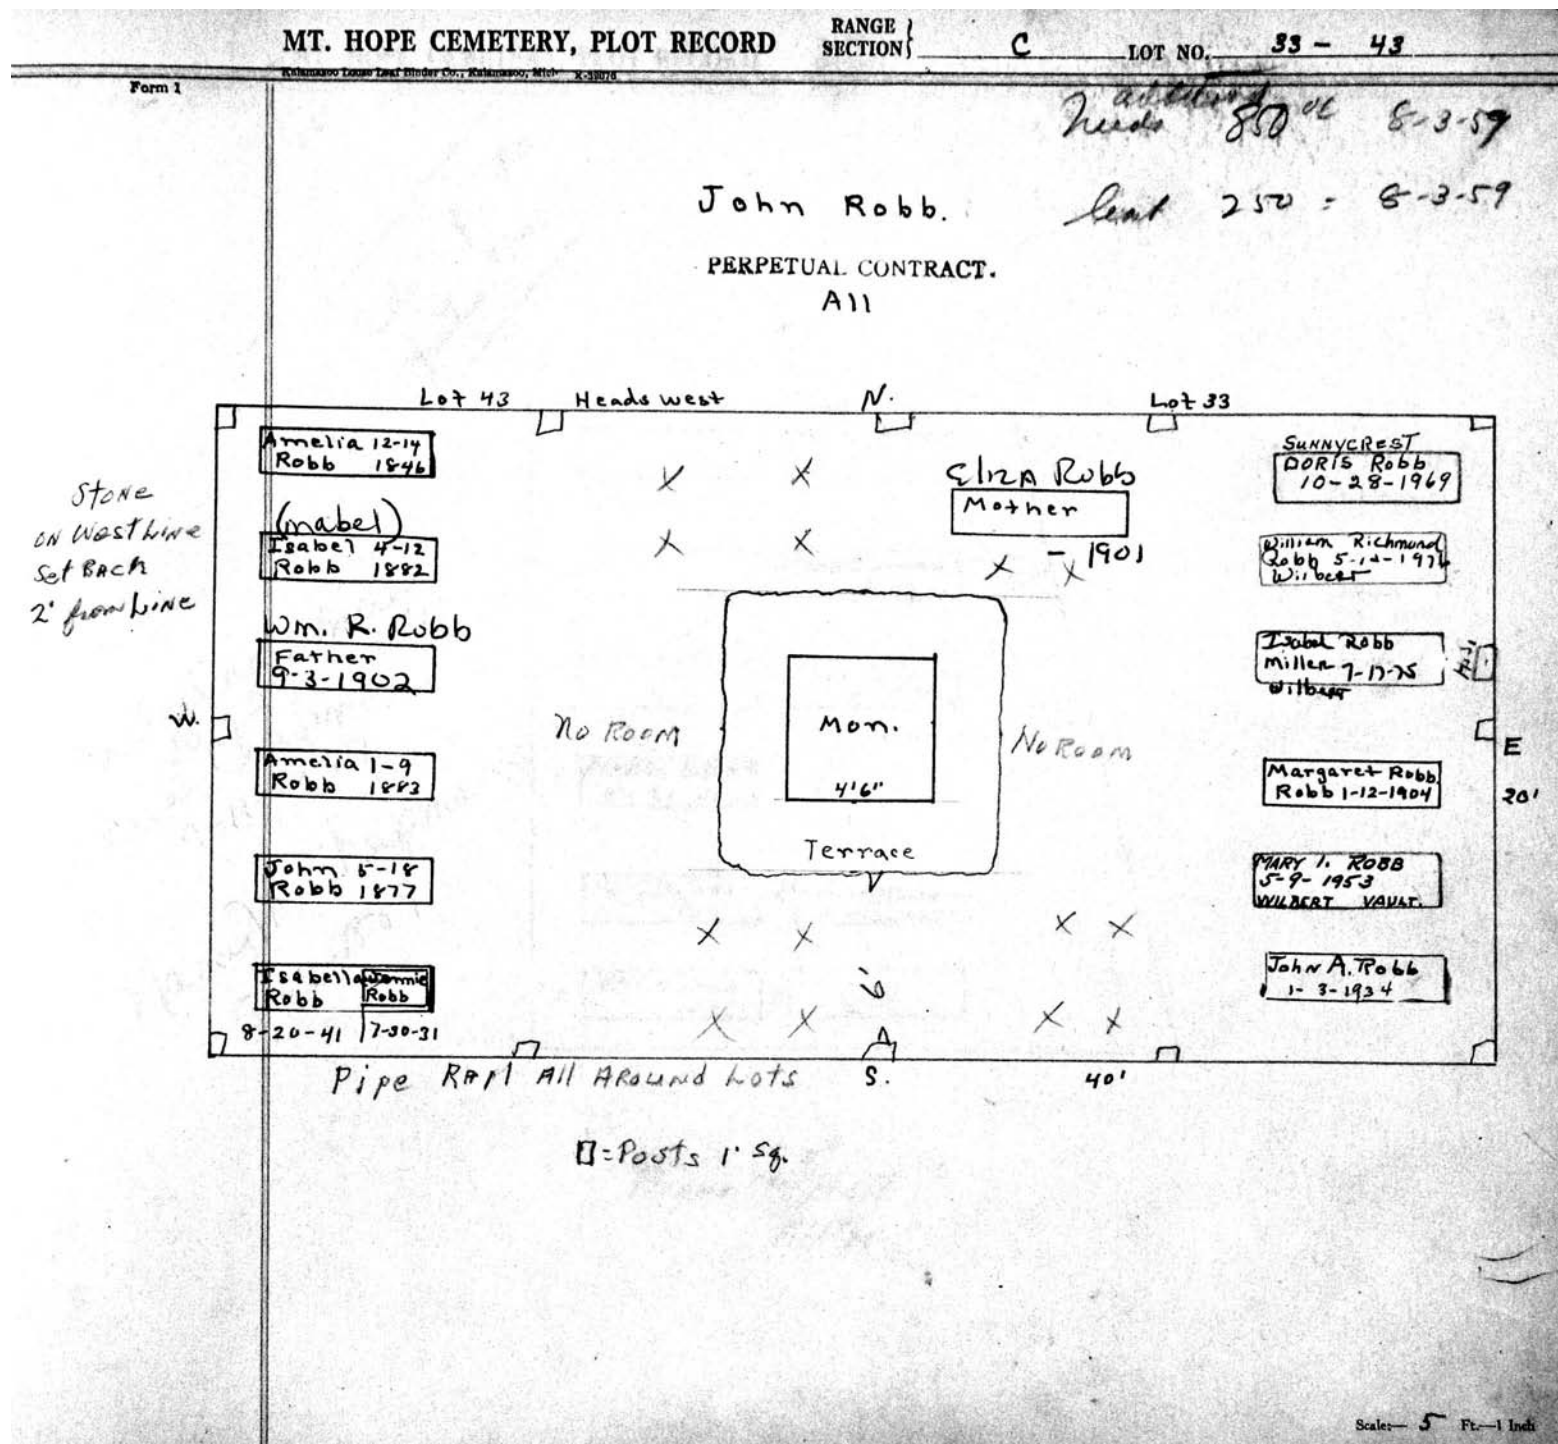 MT. HOPE CEMETERY, PLOT RECORD
RANGE
SECTION
C
LOT NO. 33 - 43
Kalamazoo Loose Leaf Binder Co., Kalamazoo, Mich.
Form 1
additional
Needs 850 8-3-59
250 = 8-3-59
John Robb.
PERPETUAL CONTRACT.
All
Lot 43
Heads west
N.
Lot 33
Stone
on West Line
Set Back
2' from Line
Amelia 12-14
Robb 1846
(mabel)
Isabel 4-12
Robb 1882
Wm. R. Robb
Father
9-3-1902
W.
Amelia 1-9
Robb 1883
John 5-18
Robb 1877
Isabella
Robb
8-20-41
Jennie
Robb
7-30-31
X X
X X
Eliza Robb
Mother
- 1901
X X
No Room
Mon.
4'6"
Terrace
No Room
X X X X
X X X X
SUNNYCREST
DORIS Robb
10-28-1969
William Richmond
Robb
Wilbert
Isabel Robb
Miller 7-17-75
Wilbert
Margaret Robb
Robb 1-12-1904
E
20'
MARY I. ROBB
5-9-1953
WILBERT VAULT.
John A. Robb
1-3-1934
Pipe Rail All Around Lots
S.
40'
=Posts 1' sq.
Scale:— 5 Ft.—1 Inch